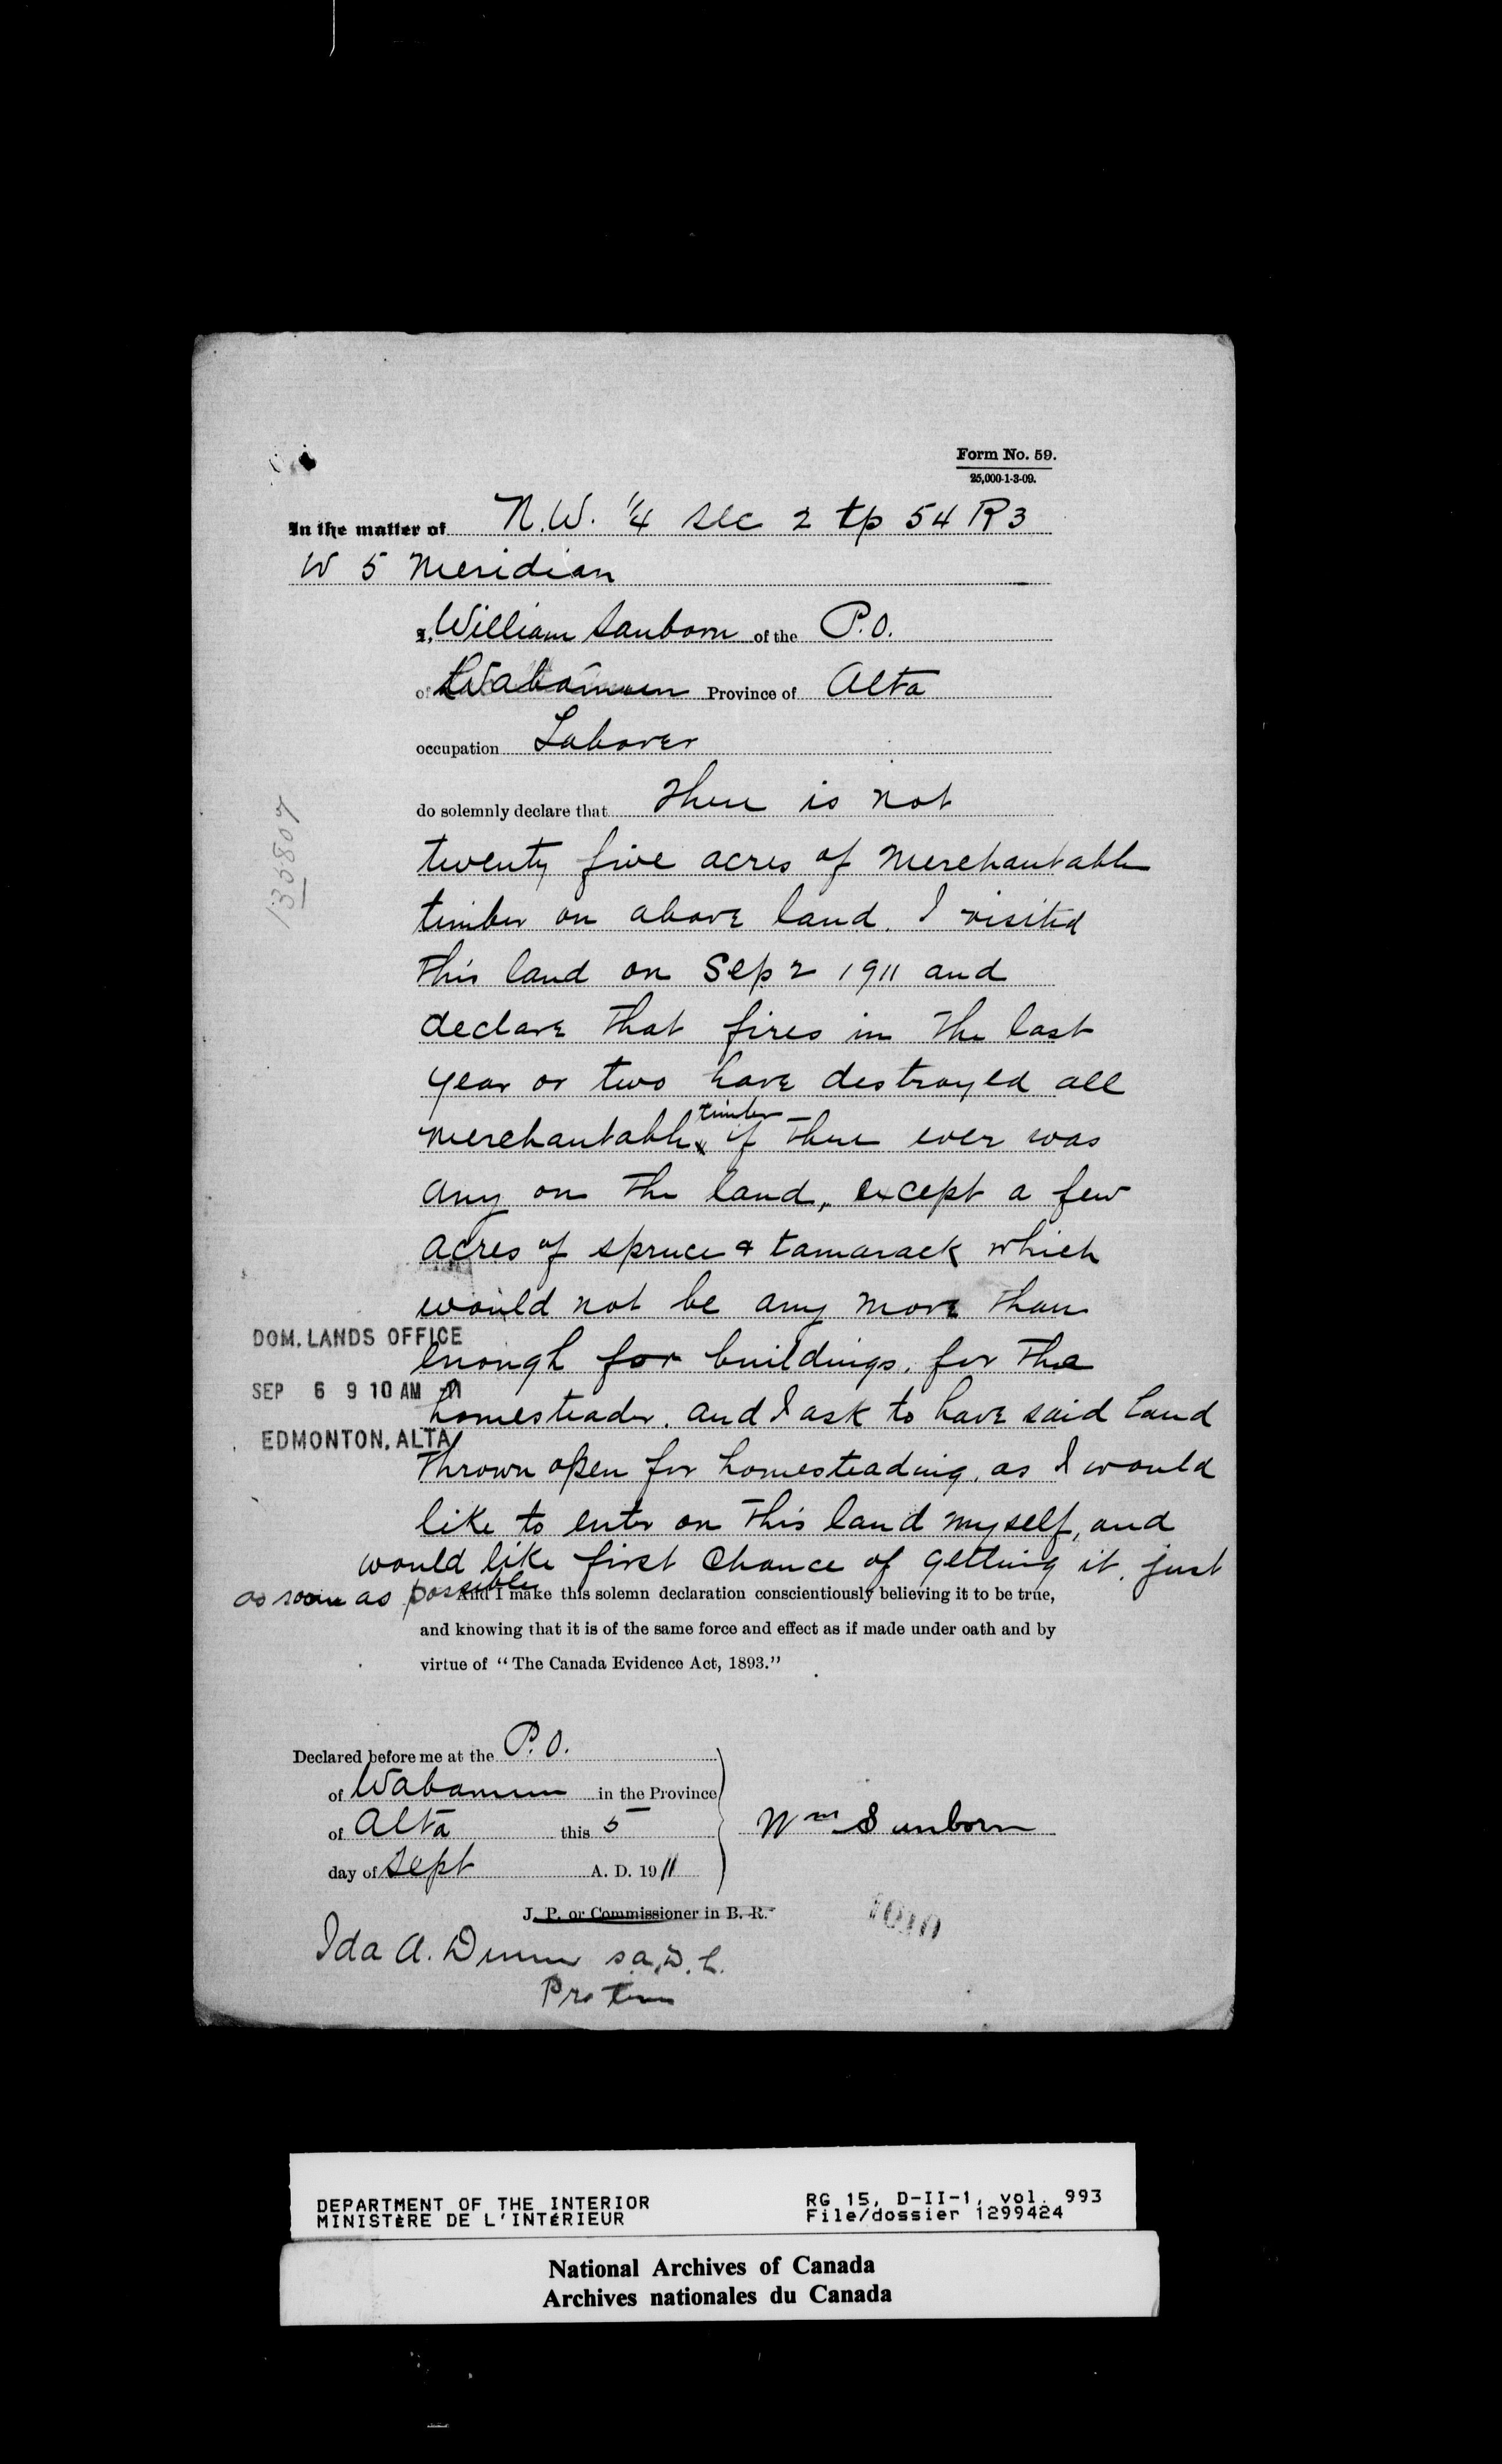 Form No. 59.
25,000-1-3-09.
In the matter of N.W. 1/4 sec 2 tp 54 R3
W 5 Meridian
I, William Sanborn of the P.O.
of Wabamun Province of Alta
occupation Laborer
do solemnly declare that there is not
twenty five acres of merchantable
timber on above land. I visited
this land on Sep 2 1911 and
declare that fires in the last
year or two have destroyed all
merchantable timber if there ever was
any on the land, except a few
acres of spruce & tamarack which
would not be any more than
enough for buildings, for the
homesteader. and I ask to have said land
thrown open for homesteading, as I would
like to enter on this land myself, and
would like first chance of getting it, just
as soon as possible
135807
DOM. LANDS OFFICE
SEP 6 9 10 AM 11
EDMONTON, ALTA
And I make this solemn declaration conscientiously believing it to be true,
and knowing that it is of the same force and effect as if made under oath and by
virtue of "The Canada Evidence Act, 1893."
Declared before me at the P.O.
of Wabamun in the Province
of Alta this 5
day of Sept A. D. 1911
Wm Sanborn
J. P. or Commissioner in B. R.
Ida A. S.A.D.L.
Pro Tem
DEPARTMENT OF THE INTERIOR
MINISTÈRE DE L'INTÉRIEUR
RG 15, D-II-1, vol. 993
File/dossier 1299424
National Archives of Canada
Archives nationales du Canada